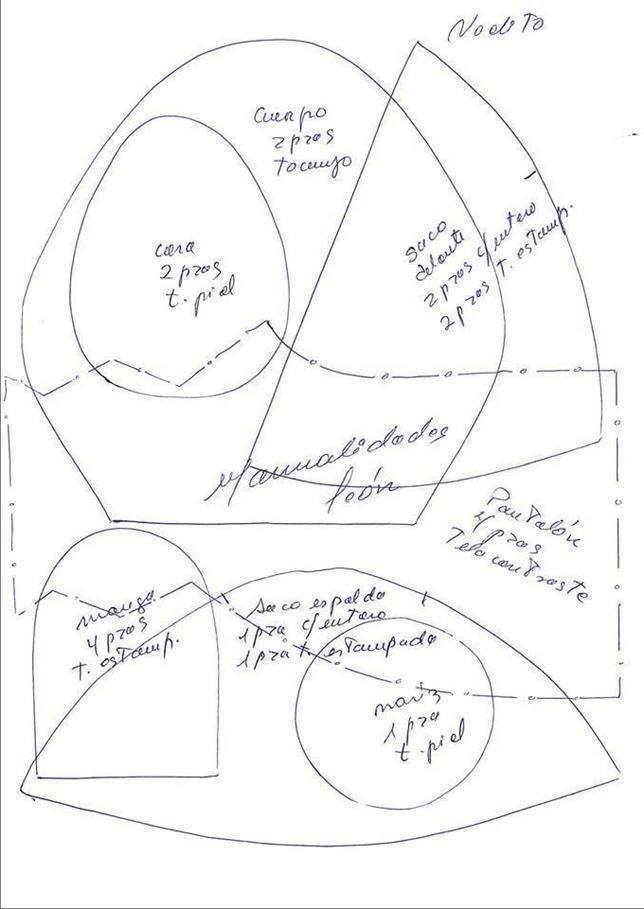 Nodito
Cuerpo
2 pzas
tocuyo
cara
2 pzas
t. piel
saco
delante
2 pzas c/entero
2 pzas t. estamp.
Manualidades
León
Pantalón
4 pzas
Tela contraste
manga
4 pzas
t. estamp.
Saco espalda
1 pza c/entero
1 pza t. estampado
nariz
1 pza
t. piel